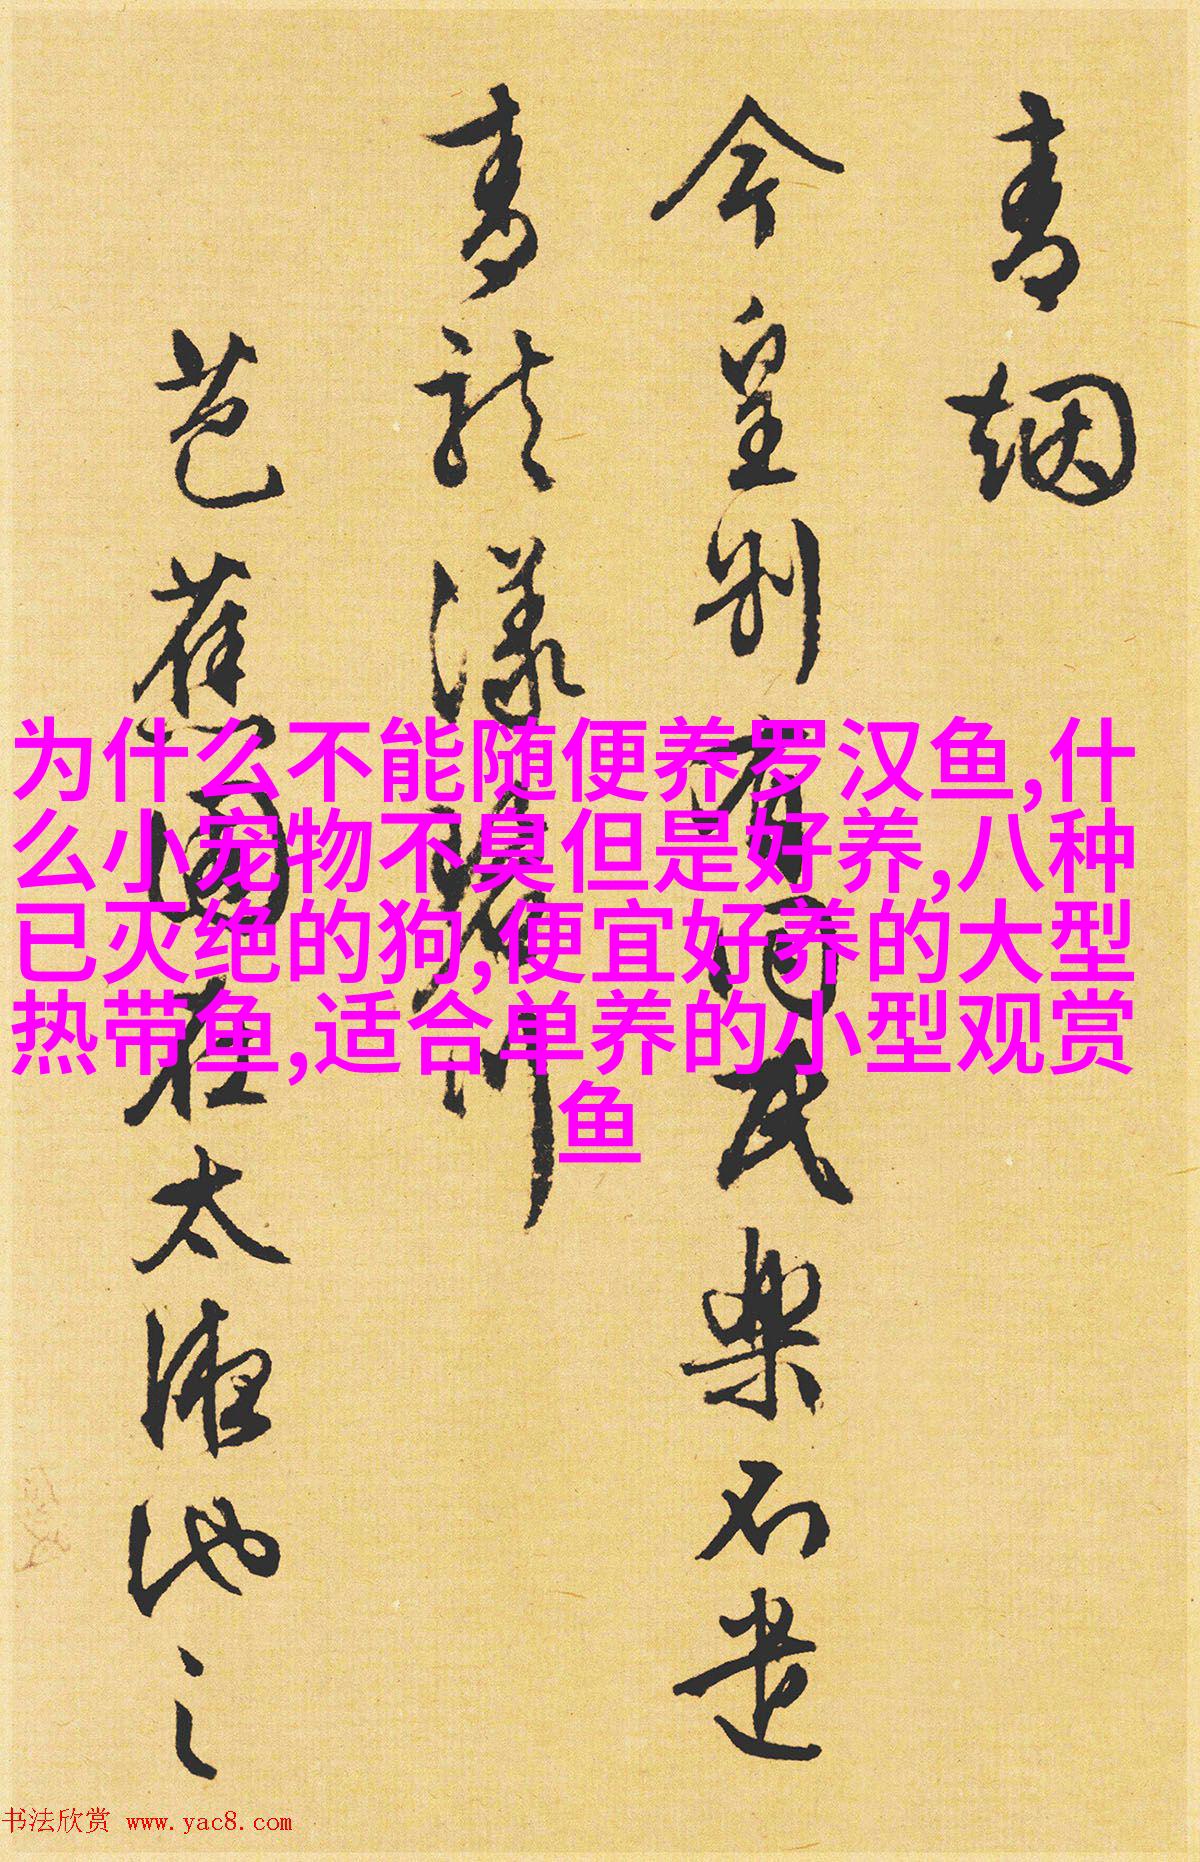 青烟
今皇别有同民樂不遣
青龍漾碧川
芭蕉園在太液池之
为什么不能随便养罗汉鱼,什
么小宠物不臭但是好养,八种
已灭绝的狗,便宜好养的大型
热带鱼,适合单养的小型观赏
鱼
书法欣赏 www.yac8.com